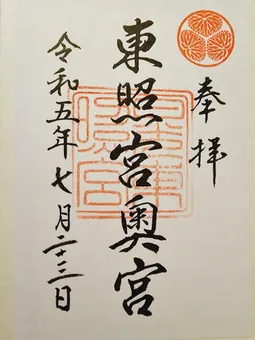 奉拝
東照宮奥宮
令和五年七月二十二日